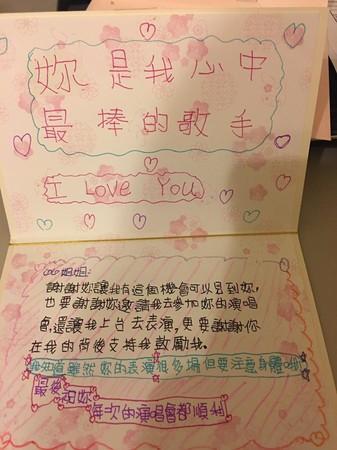 妳是我心中
最棒的歌手
I Love You
coco姐姐:
謝謝妳讓我有這個機會可以見到妳,
也要謝謝妳邀請我去參加妳的演唱
會,還讓我上台去表演,更要謝謝你
在我的背後支持我鼓勵我。
我知道雖然妳的表演很多場但要注意身體哦!
最後祝妳
每次的演唱會都順利